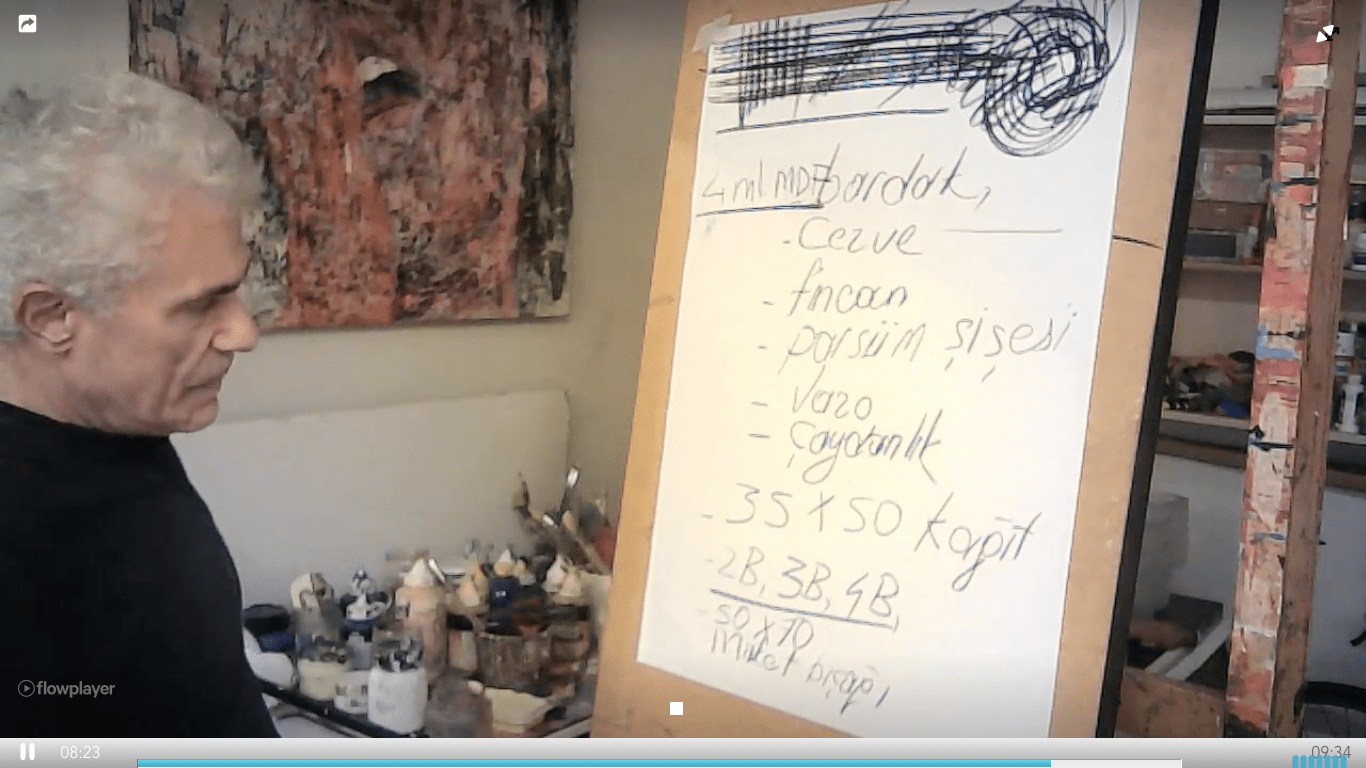 4 ml MDF bardak,
- Cezve
- fincan
- parsüm şişesi
- Vazo
- Çaydanlık
- 35 x 50 kağıt
- 2B, 3B, 4B,
- 50 x 70
flowplayer
08:23
09:34